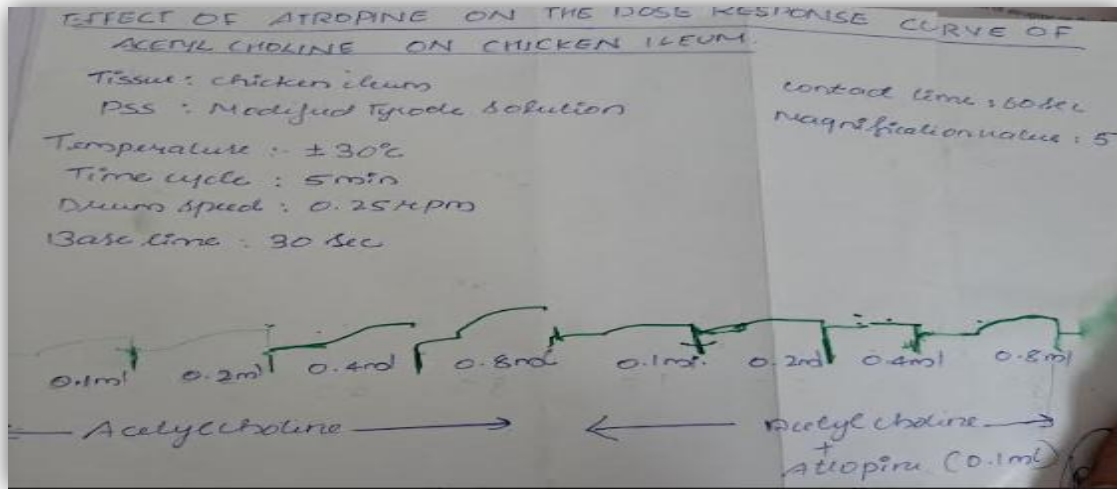 EFFECT OF ATROPINE ON THE DOSE RESPONSE CURVE OF
ACETYL CHOLINE ON CHICKEN ILEUM.
Tissue : chicken ileum
PSS : Modified Tyrode solution
Temperature :- ± 30°C
Time cycle : 5 min
Drum speed : 0.25 rpm
Base line : 30 sec
contact time : 60 sec
Magnification value : 5
0.1ml 0.2ml 0.4ml 0.8ml 0.1ml. 0.2ml 0.4ml 0.8ml
Acetylcholine
Acetyl choline
+
Atropine (0.1ml)